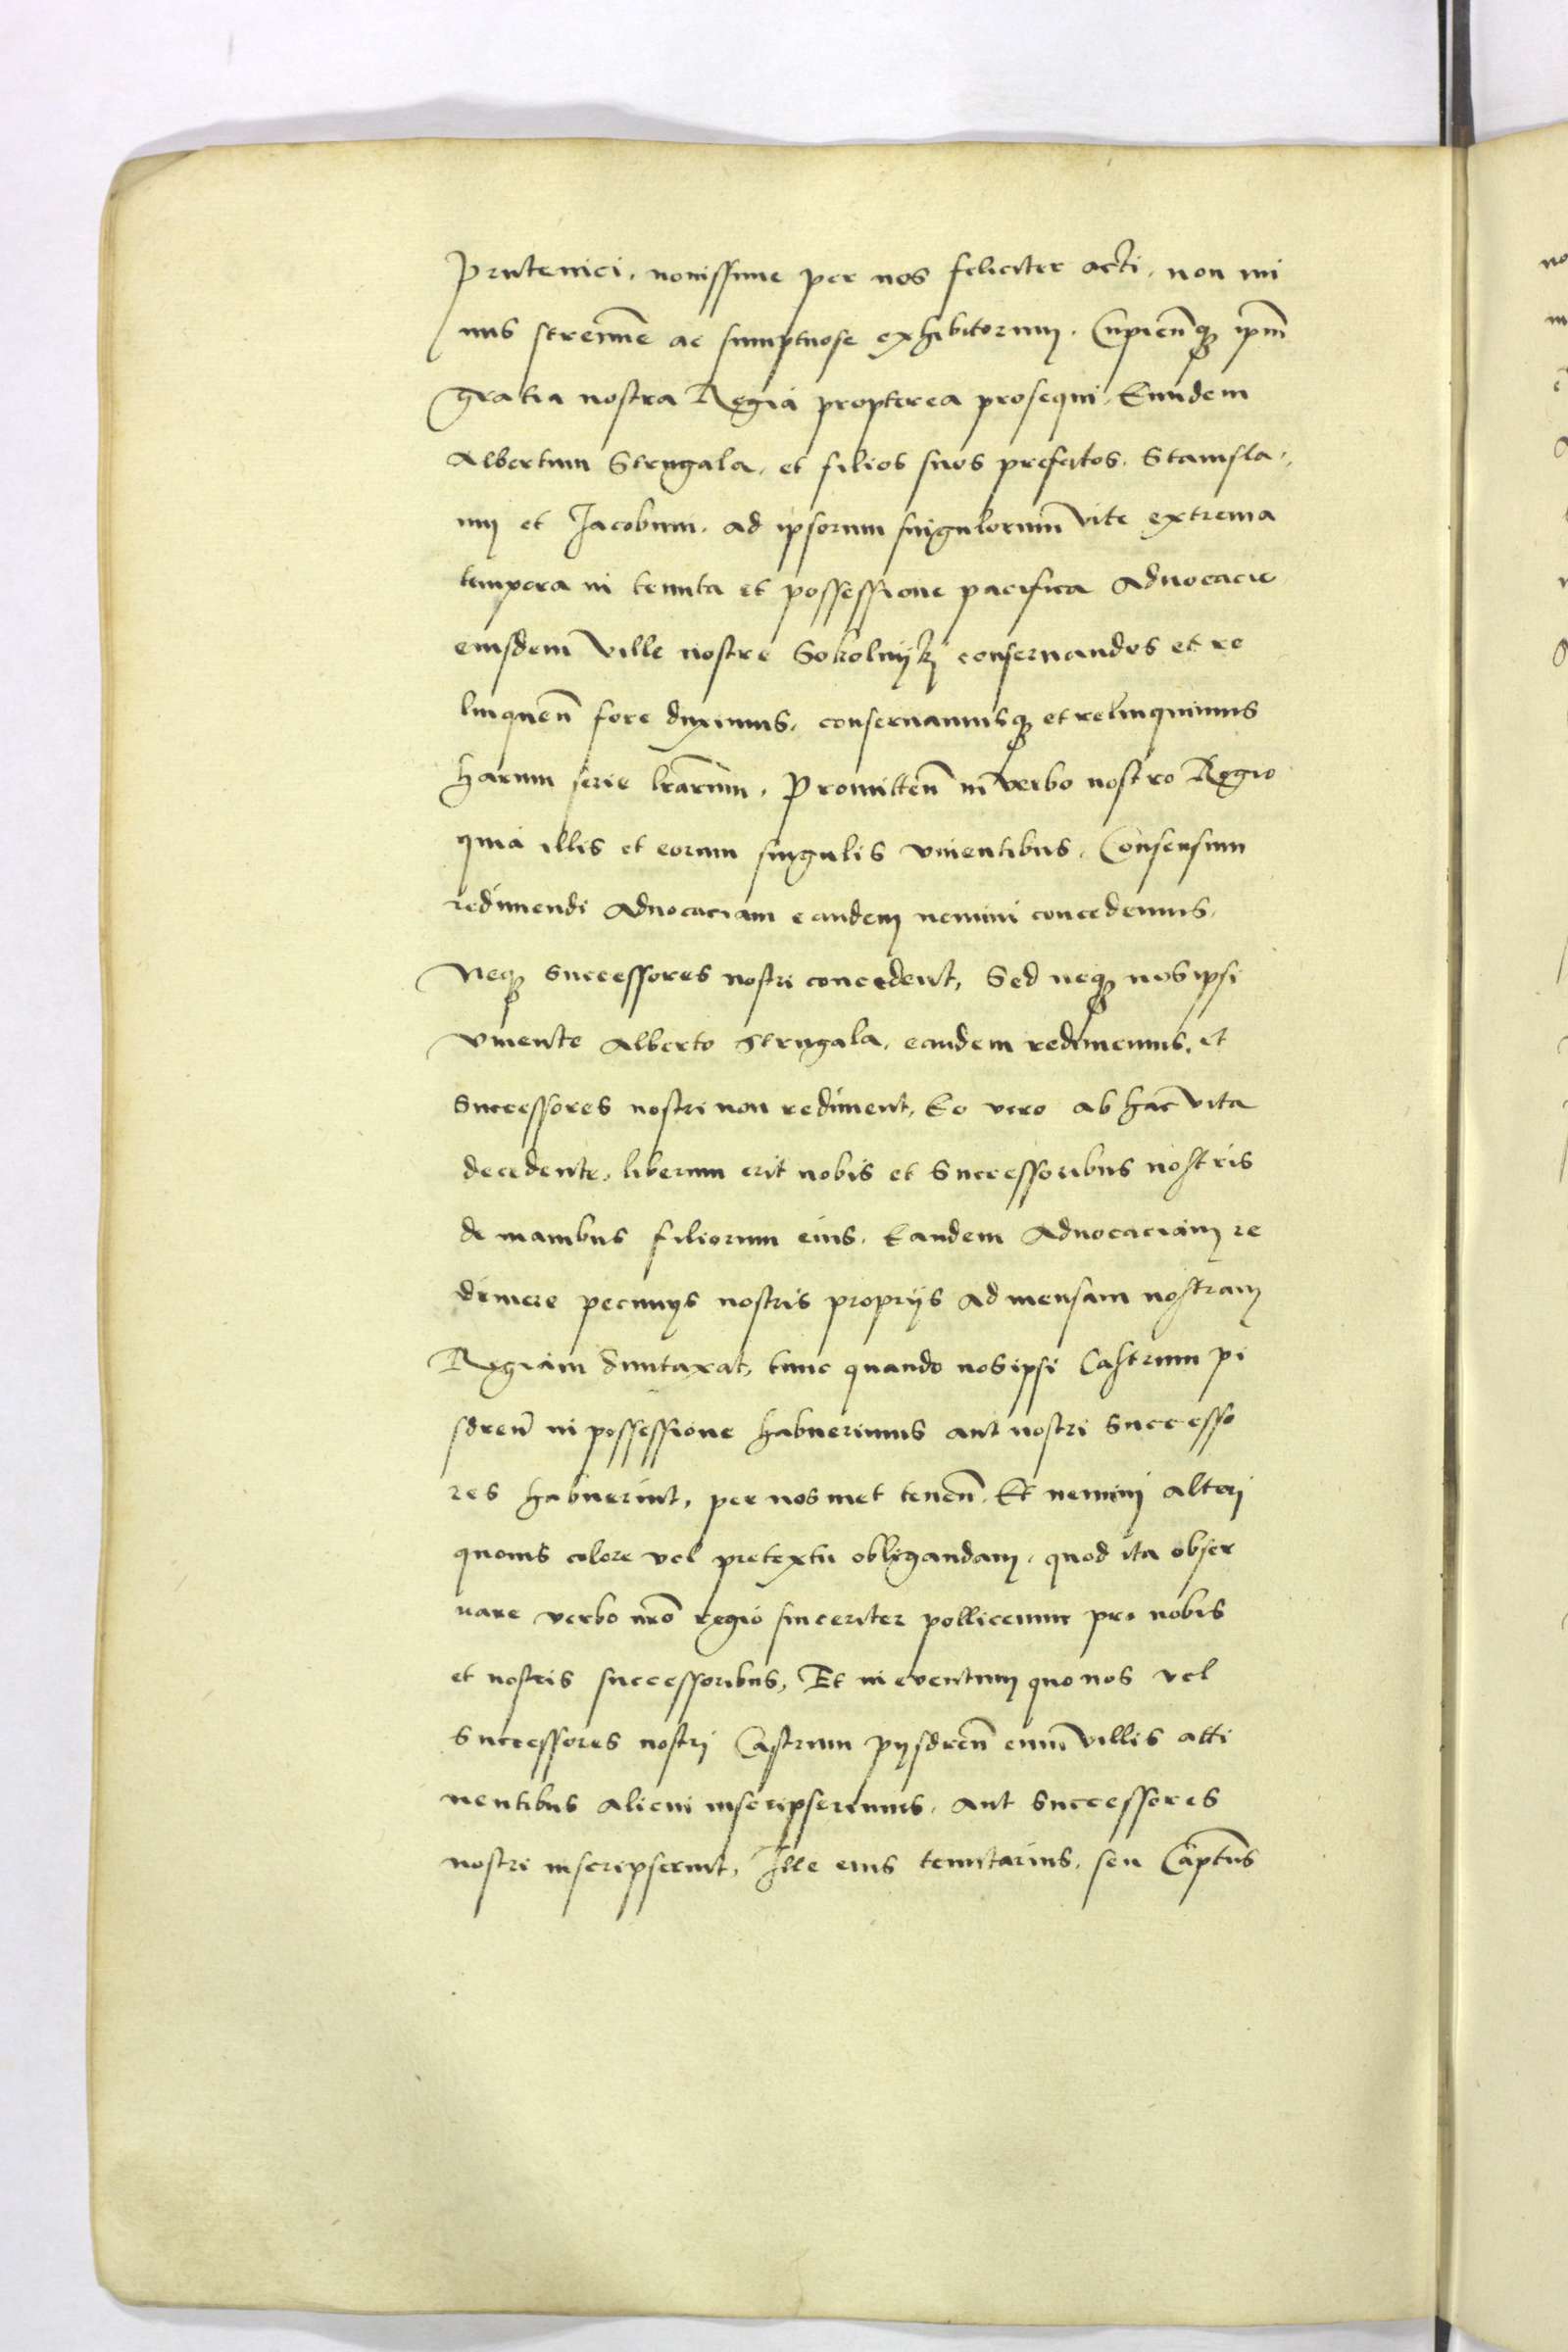 Prutenici, novissime per nos feliciter acti, non mi
nus strennue ac sumptuose exhibitorum. Cupiēnq ipm̄
gratia nostra Regia propterea prosequi, Eundem
Albertum Strugala, et filios suos prefatos, Stanisla,
um et Jacobum, ad ipsorum singulorum vite extrema
tempora in tenuta et possessione pacifica Advocacie
eiusdem ville nostre Sokolnyky conservandos et re
linquen̄ fore duximus, conservamusq et relinquimus
harum serie lrarum̄. Promitten̄ in verbo nostro Regio
quia illis et eorum singulis viventibus, Consensum
redimendi Advocaciam eandem nemini concedemus,
Neq Successores nostri concedent, Sed neq nos ipsi
vivente Alberto Strugala, eandem redimemus, et
Successores nostri non rediment, Eo vero ab hac vita
decedente, liberum erit nobis et Successoribus nostris
de manibus filiorum eius, Eandem Advocaciam re
dimere pecunijs nostris proprijs ad mensam nostram
Regiam duntaxat, tunc quando nos ipsi Castrum pi
sdren̄ in possessione habuerimus aut nostri Successo
res habuerint, per nos met tenen̄. Et nemini alteri
quovis colore vel pretextu obligandam, quod ita obser
vare verbo nr̄o regio sinceriter pollicemur pro nobis
et nostris successoribus, Et in eventum quo nos vel
Successores nostri Castrum pysdren̄ cum villis atti
nentibus alicui inscripserimus, aut Successores
nostri inscripserint, Ille eius tenutarius, seu Captūs
no